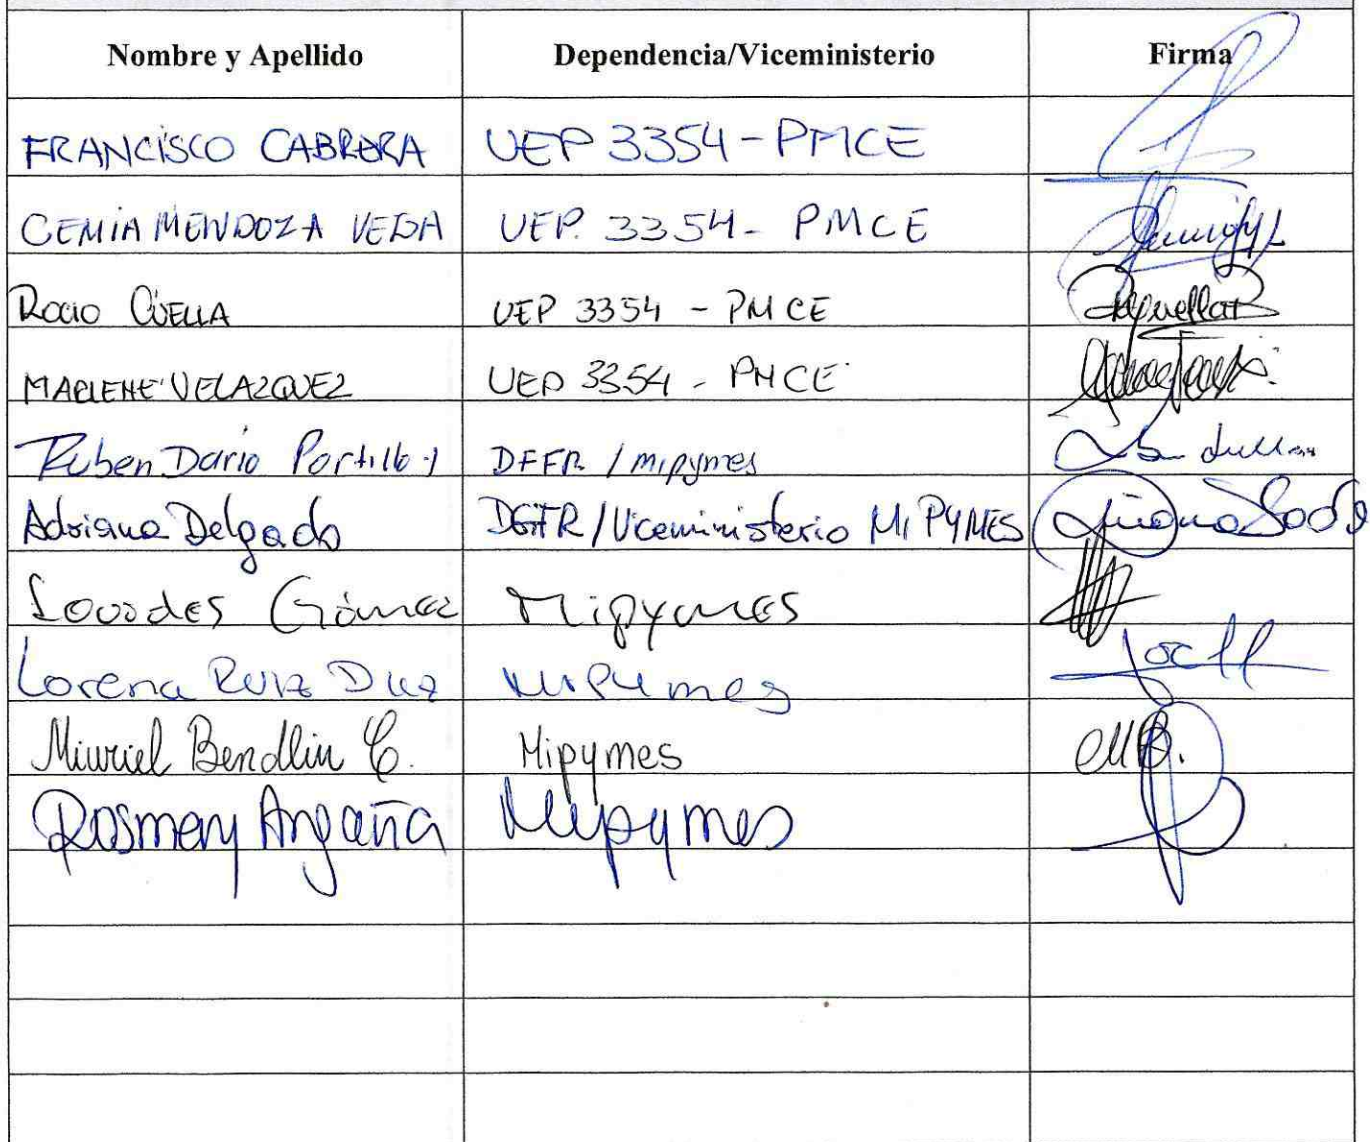 Nombre y Apellido Dependencia/Viceministerio Firma
FRANCISCO CABRERA UEP 3354 - PMCE
CEMIA MENDOZA VEGA UEP. 3354 - PMCE
ROCIO CUELLA UEP 3354 - PMCE
MARLENE VELAZQUEZ UEP 3354 - PMCE
Ruben Dario Portillo DFFR / mipymes
Adriana Delgado DGFR/Viceministerio MIPYMES
Lourdes Gómez Mipymes
Lorena Ruiz Diaz MiPymes
Miuriel Bendlin C. Mipymes
Rosmery Angaña Mipymes